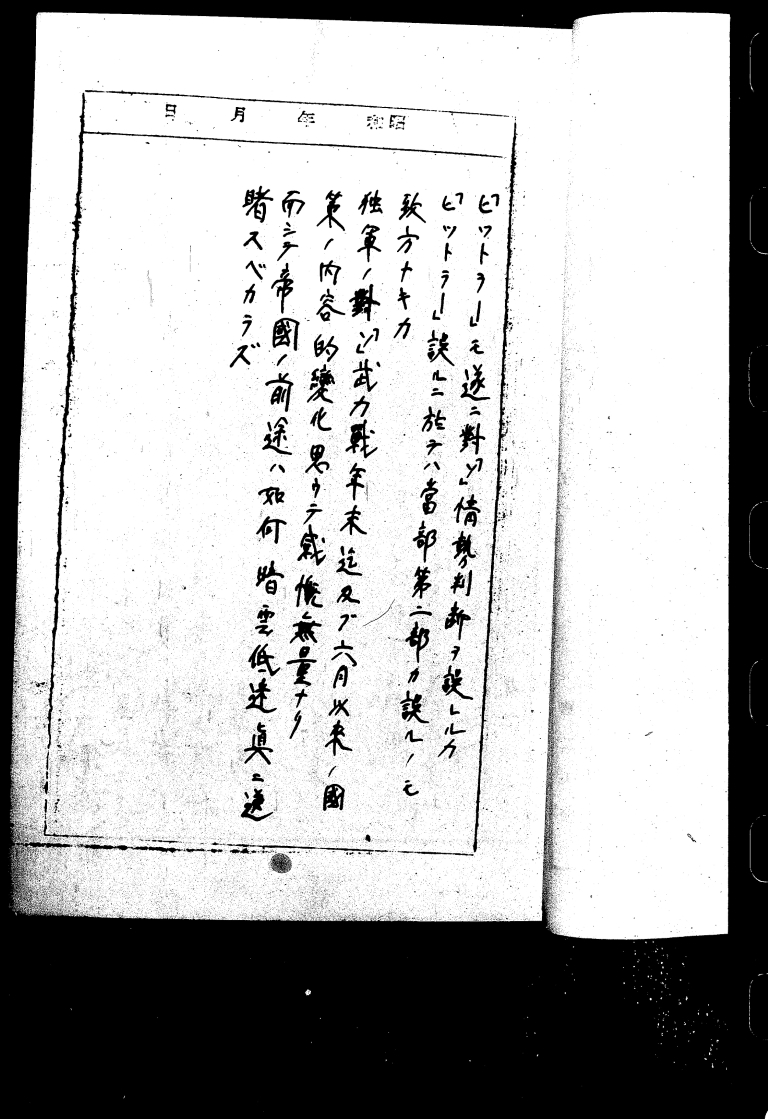 昭和　年　月　日
「ヒットラー」モ遂ニ對「ソ」情勢判断ヲ誤レルカ
「ヒットラー」誤ルニ於テハ當部第二部カ誤ルノモ
致方ナキカ
独軍ノ對「ソ」武力戰年末迄及ブ六月以来ノ國
策ノ内容的變化思ウテ感慨無量ナリ
而シテ帝國ノ前途ハ如何暗雲低迷真ニ逆
睹スベカラズ